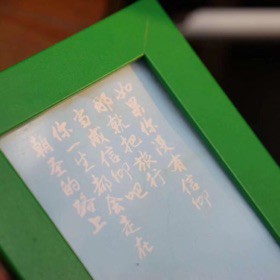 如果你没有信仰
那就把旅行
当成信仰吧
你一生都会走在
朝圣的路上